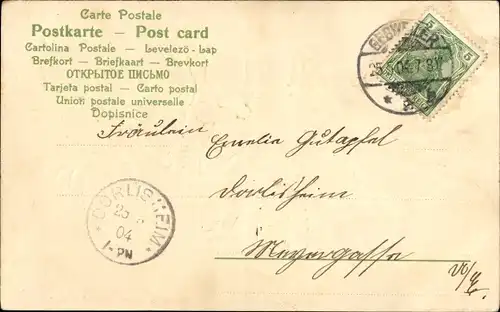 Carte Postale
Postkarte — Post card
Cartolina Postale — Levelező-Lap
Brefkort — Briefkaart — Brevkort
ОТКРЫТОЕ ПИСЬМО
Tarjeta postal — Carto postal
Union postale universelle
Dopisnice
5 5
Fräulein Emelie Gutapfel
Dorlisheim
Metzgergasse
DORLISHEIM
25
04
1-PN